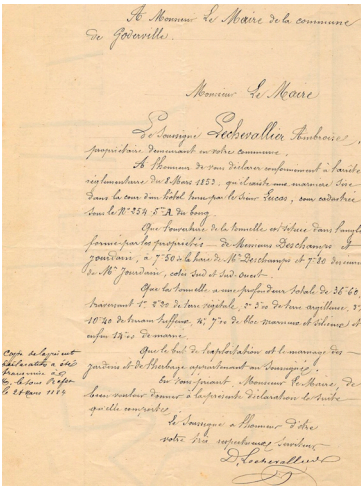 A Monsieur Le Maire de la commune
de Goderville.
Monsieur Le Maire
Le Soussigné Lechevallier Ambroise,
propriétaire demeurant en votre commune.
A l'honneur de vous déclarer conformément à l'arrêté
réglementaire du 8 Mars 1853, qu'il existe une marnière sise
dans la cour d'un hôtel tenu par le sieur Lucas, cour cadastrée
sous le N° 254 Son A du bourg.
Que l'ouverture de la tonnelle est située dans l'angle
formé par les propriétés de Messieurs Deschamps et
Jourdain, à 7m50 de la haie de Mr Deschamps et 7m20 du mur
de Mr Jourdain, côtés sud et sud-ouest.
Que la tonnelle a une profondeur totale de 36m60,
traversant 1° 5m20 de terre végétale, 2° 5m00 de terre argileuse, 3°
10m40 de tuffeux, 4° 7m00 de marneux et siliceux et
enfin 14m00 de marne.
Que le but de l'exploitation est le marnage des
jardins et de l'herbage appartenant au Soussigné.
En vous priant, Monsieur Le Maire, de
bien vouloir donner à la présente déclaration la suite
qu'elle comporte.
Le Soussigné a l'honneur d'être
votre très respectueux serviteur
Lechevallier
Copie de la présente
déclaration a été
transmise à
le Sous Préfet
le 28 Mars